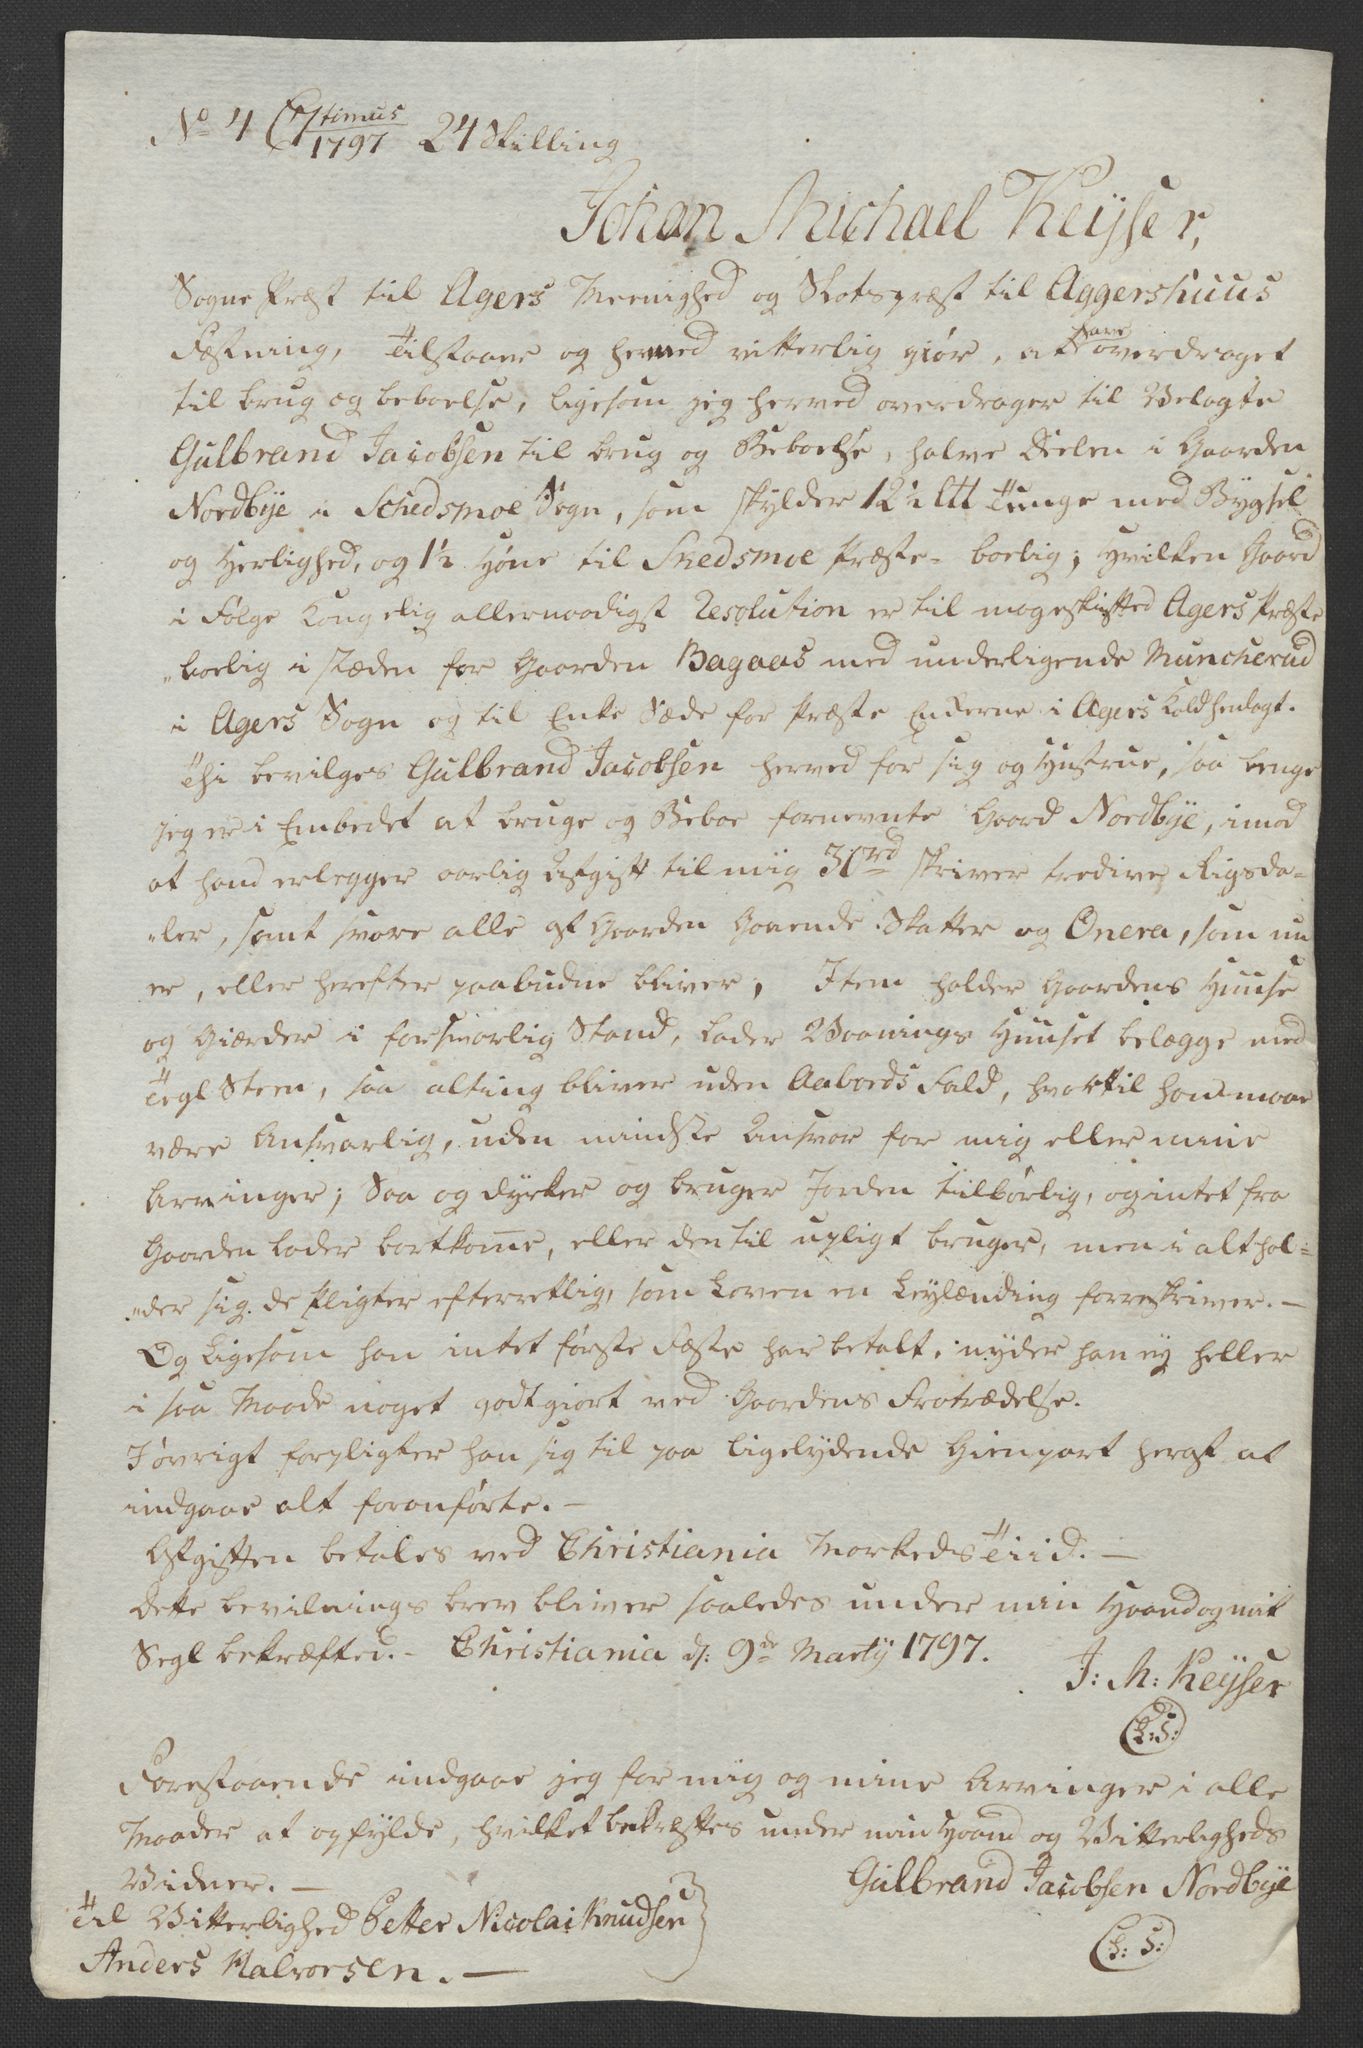 No 4 C7timus 1797 24 Skilling
Johan Michael Keyser,
Sogne Præst til Agers Meenighed og Slotspræst til Aggershuus
Fæstning, Tilstaaer og hermed vitterlig giør, at have overdraget
til brug og beboelse, ligesom jeg herved overdrager til Velagte
Gulbrand Jacobsen til brug og Beboelse, halve Deelen i Gaarden
Nordbÿe i Schedsmoe Sogn, som skylder 12½ Lll Tunge med Bygsel
og Herlighed, og 1½ Høne til Skedsmoe Præste-boelig; hvilken Gaard
i følge Kongelig allernaadigst Resolution er til mageskifted Agers Præste
„boelig i stæden for Gaarden Bagaas med underliggende Muncherud
i Agers Sogn og til Enke Sæde for Præste Enkerne i Agers Kald henlagt.
Thi bevilges Gulbrand Jacobsen herved for sig og Hustrue, saa lenge
jeg er i Embedet at bruge og Beboe fornevnte Gaard Nordbÿe, imod
at hand erlegger aarlig Afgift til mig 30rd skriver tredive Rigsda=
„ler, samt svare alle af Gaarden Gaaende Skatter og Onera, som nu
er, eller herefter paabudne bliver, Item holder Gaardens Huuse
og Giærder i forsvarlig Stand, lader Vaanings Huuset belægge med
Tegl Steen, saa alting bliver uden Aabords Fald, hvortil han maae
være Ansvarlig, uden mindste Ansvar for mig eller mine
Arvinger; Saa og dyrker og bruger Jorden tilbørlig, og intet fra
Gaarden lader bortkomme, eller den til upligt bruger, men i alt hol=
„der sig de Pligter efterretlig, som Loven en Leylænding forreskriver. —
Og ligesom han intet første Fæste har betalt, nyder han ey heller
i saa Maade noget godtgiort ved Gaardens Fratrædelse.
I øvrigt forpligter han sig til paa ligelydende Gienpart heraf at
indgaae alt foranførte. —
Afgiften betales ved Christiania Markeds Tiid. —
Dette bevilnings brev bliver saaledes under min Haand og mit
Segl bekræfted. - Christiania d: 9de Martÿ 1797.
J: M: Keÿser
(L:S:)
Forestaaende indgaae jeg for mig og mine Arvinger i alle
Maader at opfylde, hvilket bekræftes under min Haand og Vitterligheds
Vidner. —
Gulbrand Jacobsen Nordbÿe
Til Vitterlighed Petter Nicolai Knudsen
(L:S:)
Anders Halvorsen. —